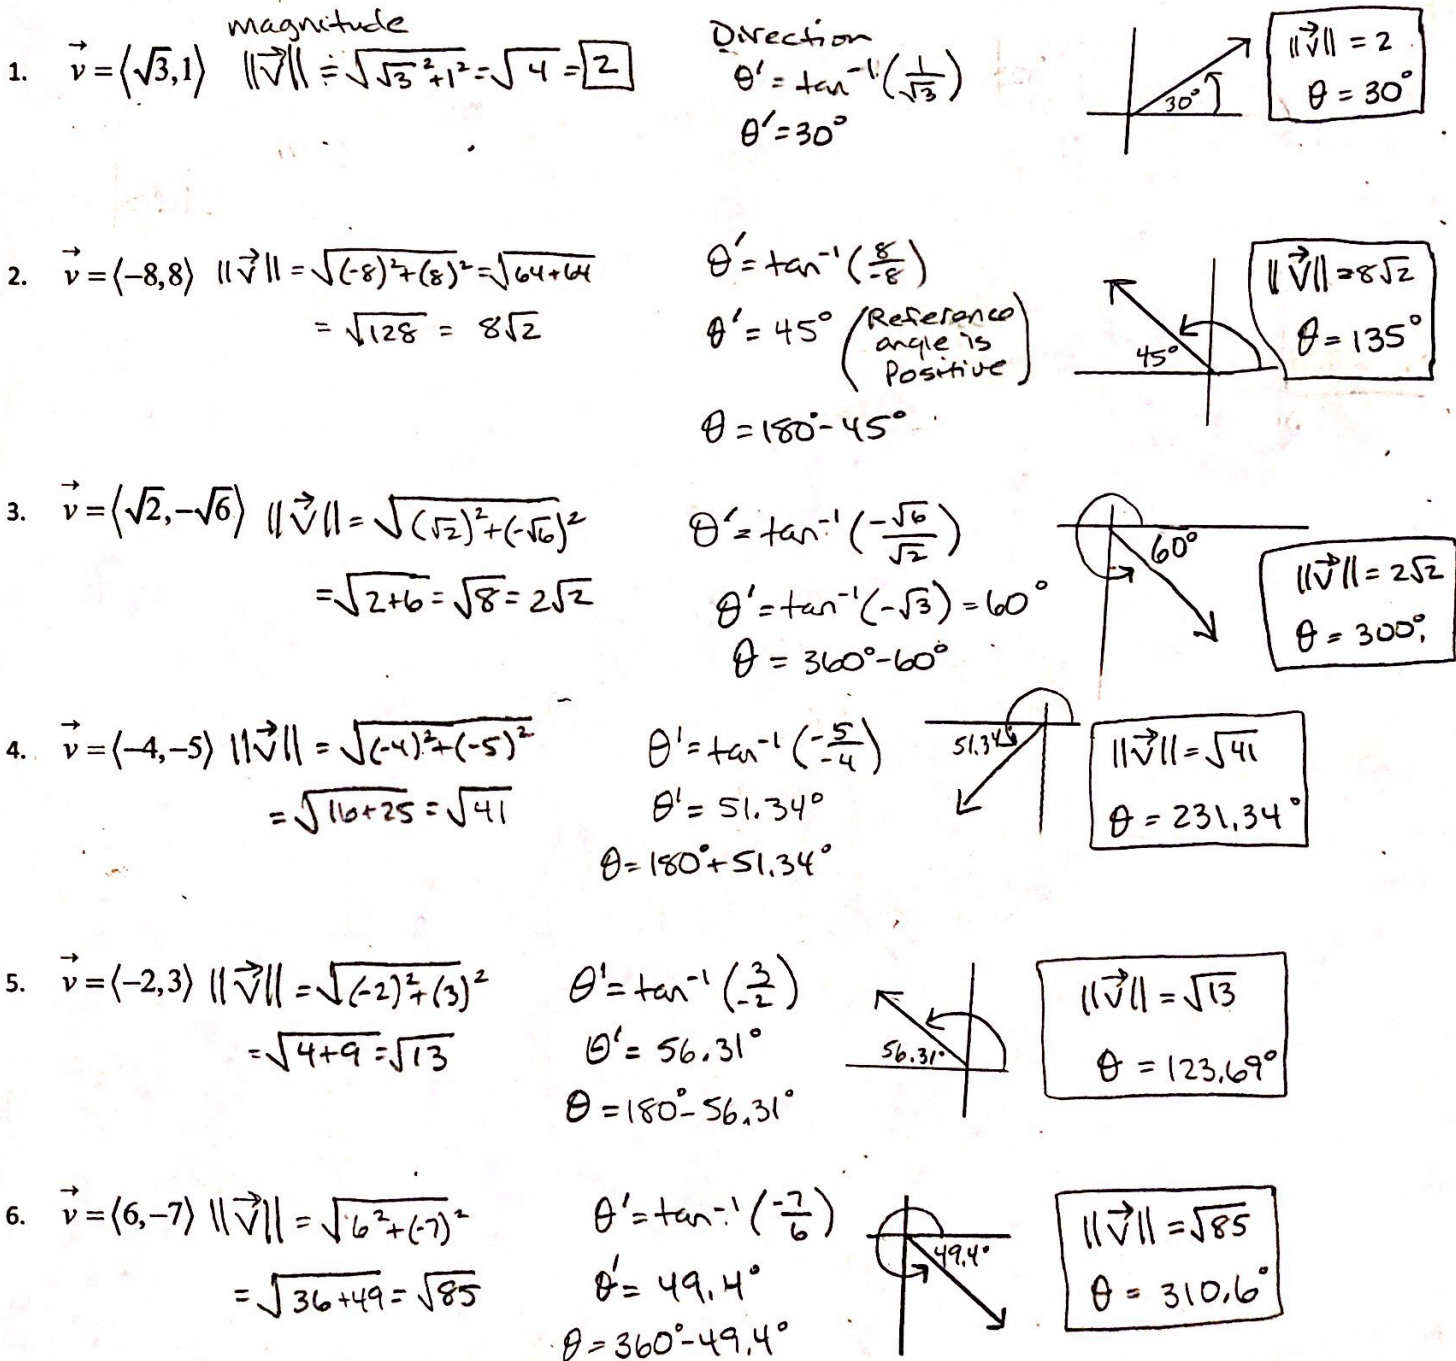 magnitude
Direction
1. v⃗ = ⟨√3, 1⟩ ||v⃗|| = √(√3² + 1²) = √4 = 2
θ' = tan⁻¹(1/√3)
θ' = 30°
30°
||v⃗|| = 2
θ = 30°
2. v⃗ = ⟨-8, 8⟩ ||v⃗|| = √((-8)² + (8)²) = √(64+64)
= √128 = 8√2
θ' = tan⁻¹(8/-8)
θ' = 45° (Reference
angle is
Positive)
θ = 180° - 45°
45°
||v⃗|| = 8√2
θ = 135°
3. v⃗ = ⟨√2, -√6⟩ ||v⃗|| = √((√2)² + (-√6)²)
= √(2+6) = √8 = 2√2
θ' = tan⁻¹(-√6/√2)
θ' = tan⁻¹(-√3) = 60°
θ = 360° - 60°
60°
||v⃗|| = 2√2
θ = 300°
4. v⃗ = ⟨-4, -5⟩ ||v⃗|| = √((-4)² + (-5)²)
= √(16+25) = √41
θ' = tan⁻¹(-5/-4)
θ' = 51.34°
θ = 180° + 51.34°
51.34°
||v⃗|| = √41
θ = 231.34°
5. v⃗ = ⟨-2, 3⟩ ||v⃗|| = √((-2)² + (3)²)
= √(4+9) = √13
θ' = tan⁻¹(3/-2)
θ' = 56.31°
θ = 180° - 56.31°
56.31°
||v⃗|| = √13
θ = 123.69°
6. v⃗ = ⟨6, -7⟩ ||v⃗|| = √(6² + (-7)²)
= √(36+49) = √85
θ' = tan⁻¹(-7/6)
θ' = 49.4°
θ = 360° - 49.4°
49.4°
||v⃗|| = √85
θ = 310.6°